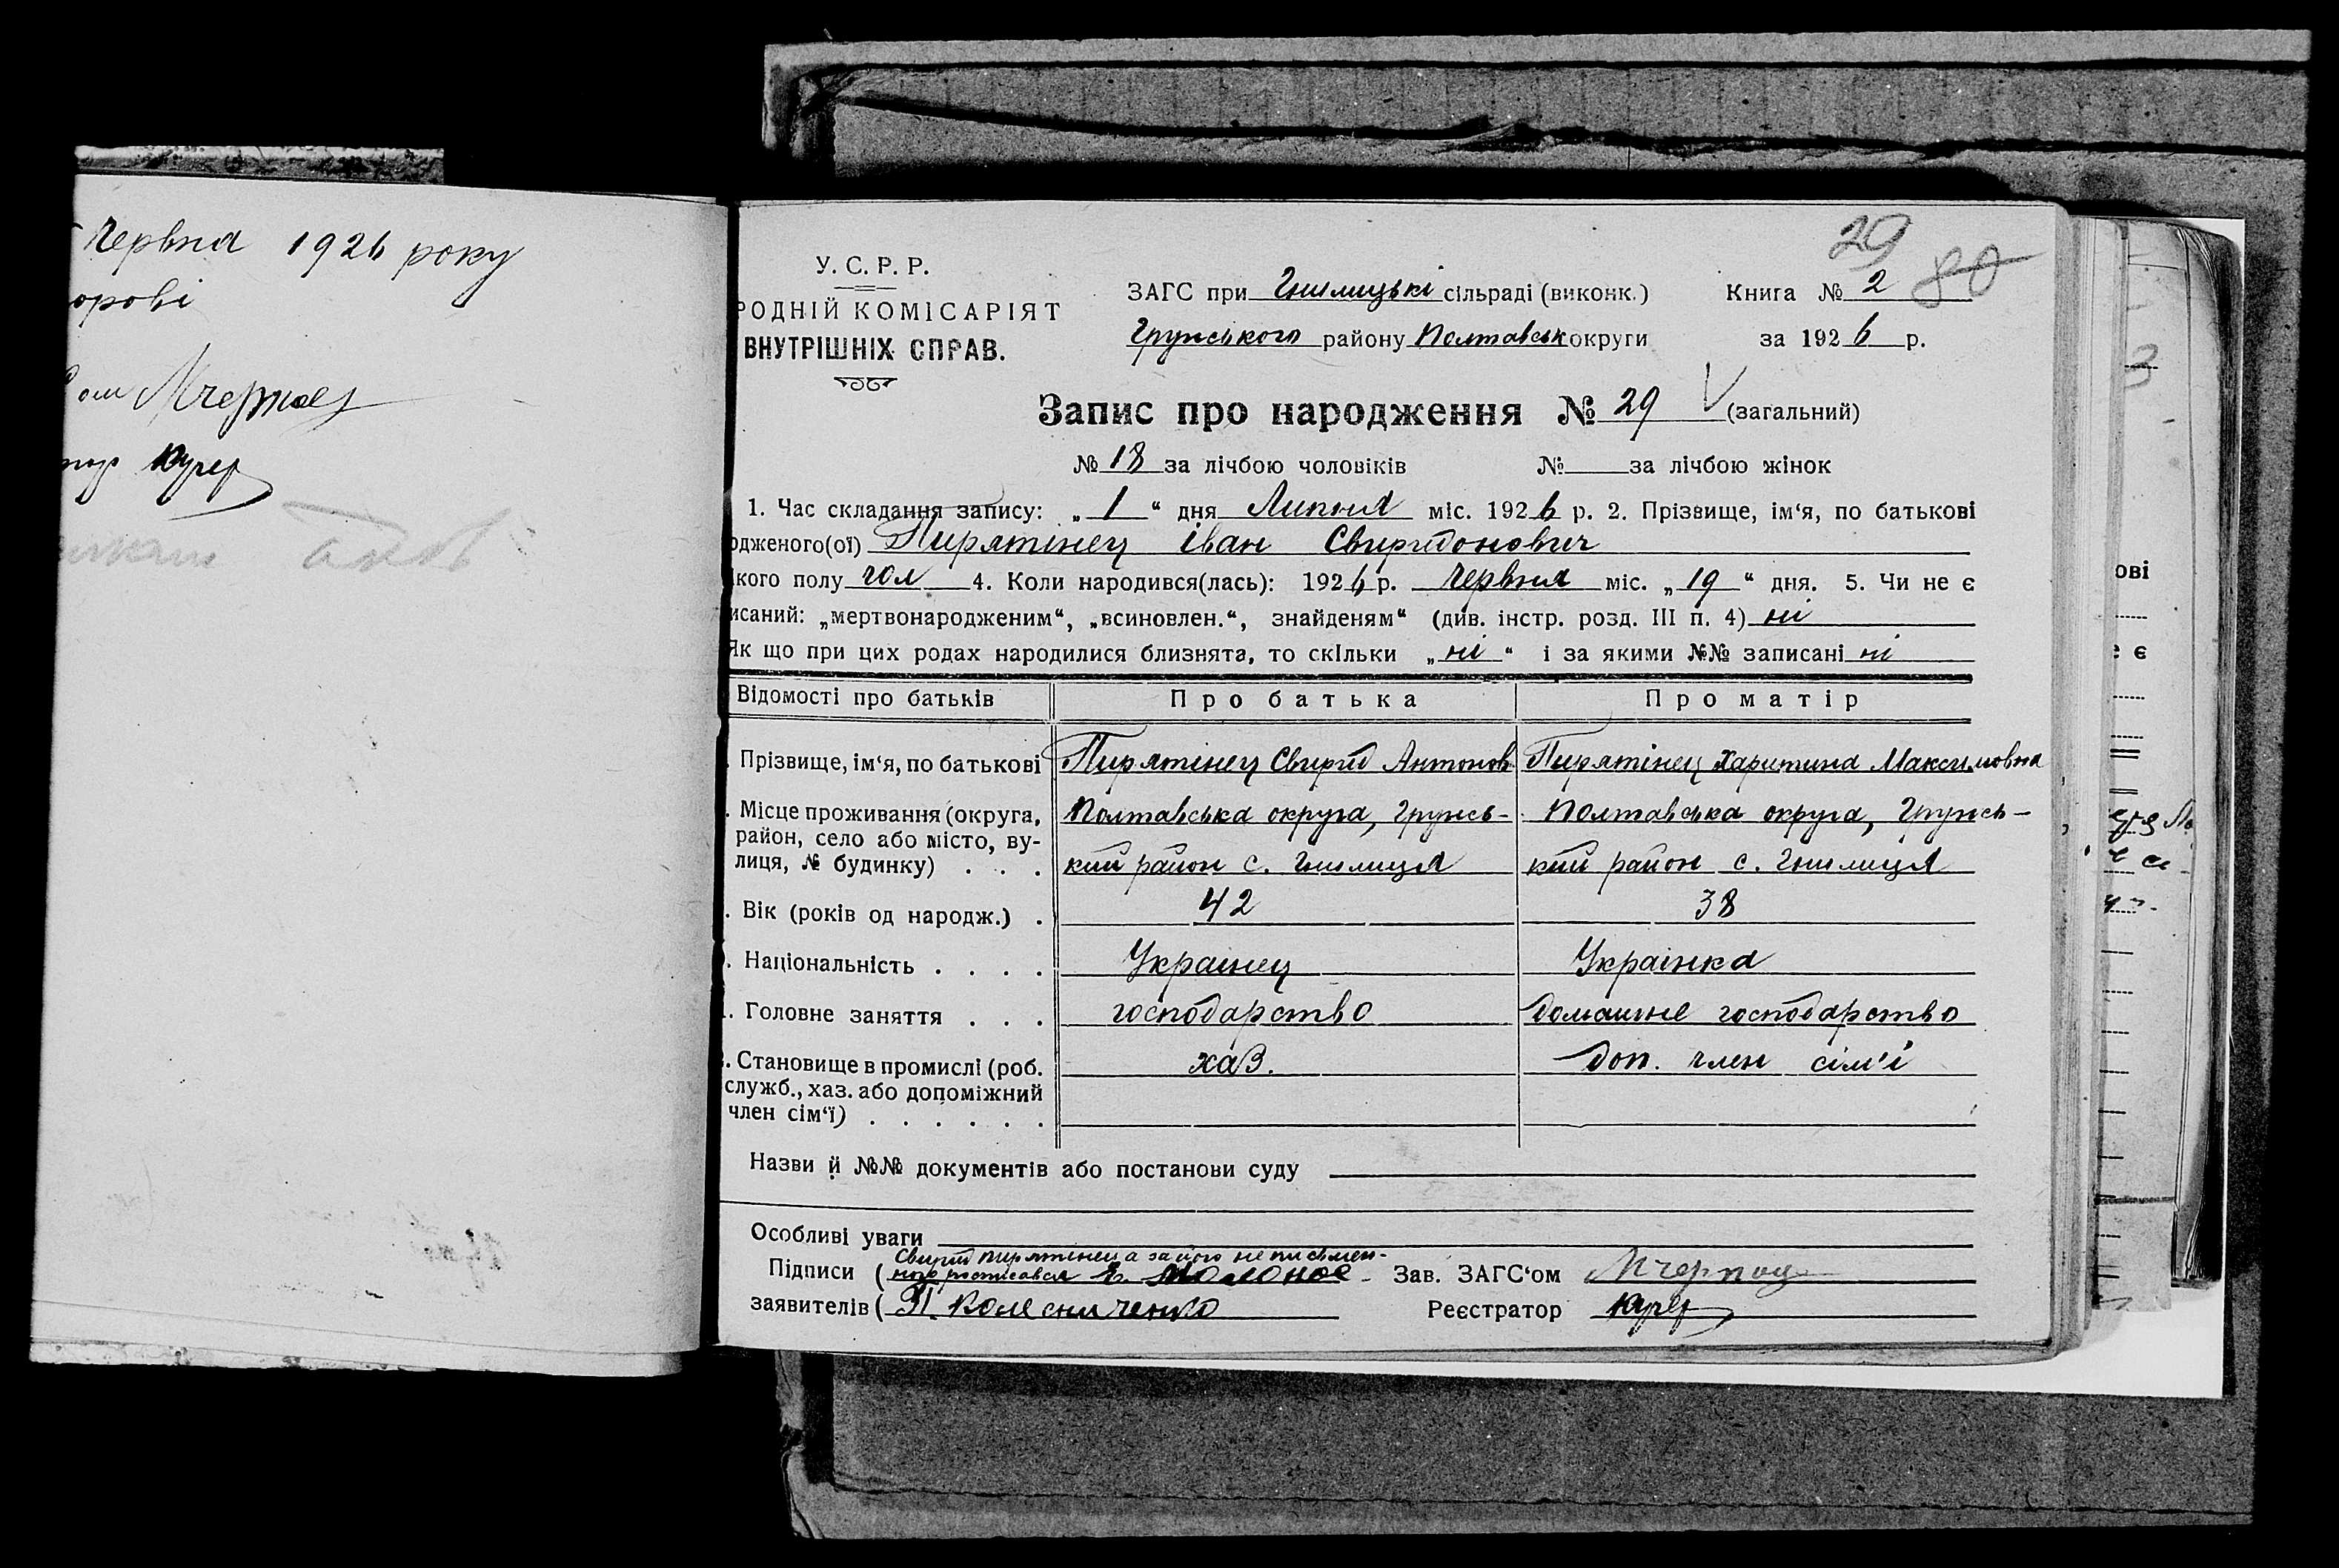 Червня 1926 року
орові
ом МЧерпов
тор Кучер
29
80
У. С. Р. Р.
РОДНІЙ КОМІСАРІЯТ
ВНУТРІШНІХ СПРАВ.
ЗАГС при Гнилицькі сільраді (виконк.) Книга № 2
Грунського району Полтавськ округи за 1926 р.
Запис про народження № 29 V (загальний)
№ 18 за лічбою чоловіків № за лічбою жінок
1. Час складання запису: „ 1 “ дня Липня міс. 1926 р. 2. Прізвище, ім‘я, по батькові
одженого(ої) Пирятінец Іван Свиридонович
якого полу чол 4. Коли народився(лась): 1926 р. Червня міс. „ 19 “ дня. 5. Чи не є
исаний: „мертвонародженим“, „всиновлен.“, знайденям“ (див. інстр. розд. III п. 4) ні
Як що при цих родах народилися близнята, то скільки „ ні “ і за якими №№ записані ні
Відомості про батьків Про батька Про матір
Прізвище, ім‘я, по батькові Пирятінец Свирид Антонов Пирятінец Харитина Максимовна
. Місце проживання (округа, Полтавська округа, Грунсь- Полтавська округа, Грунсь-
район, село або місто, ву-
лиця, № будинку) . . . кий район с. Гнилиця кий район с. Гнилиця
. Вік (років од народж.) . 42 38
. Національність . . . . Украінец Украінка
. Головне заняття . . . господарство Домашне господарство
. Становище в промислі (роб. хаз. доп. член сім'і
служб., хаз. або допоміжний
член сім‘ї) . . . . . .
Назви й №№ документів або постанови суду
Особливі уваги
Свирид Пирятінец а за його неписьмен-
Підписи ( ного росписався Зав. ЗАГС‘ом МЧерпов
заявителів ( П Колесниченко Реєстратор Кучер
ові
є